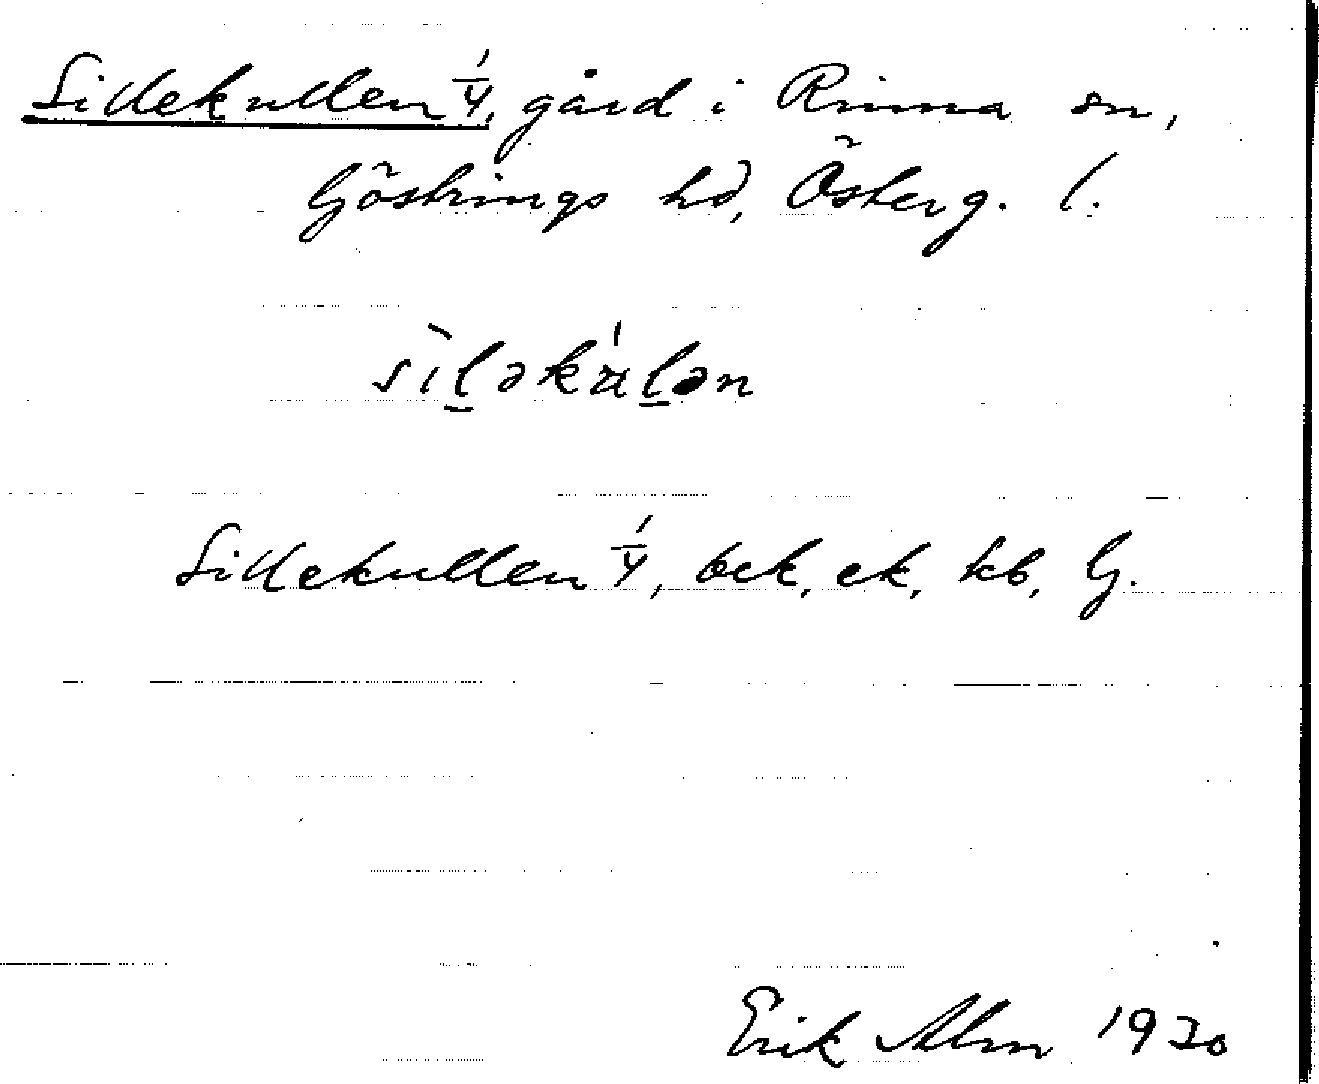 Sillekullen 1/4, gård i Rinna sn,
Göstrings hd, Österg. l.
sìl̲əkál̲ən
Sillekullen 1/4, bck, ek, kb, G.
Erik Alm 1930